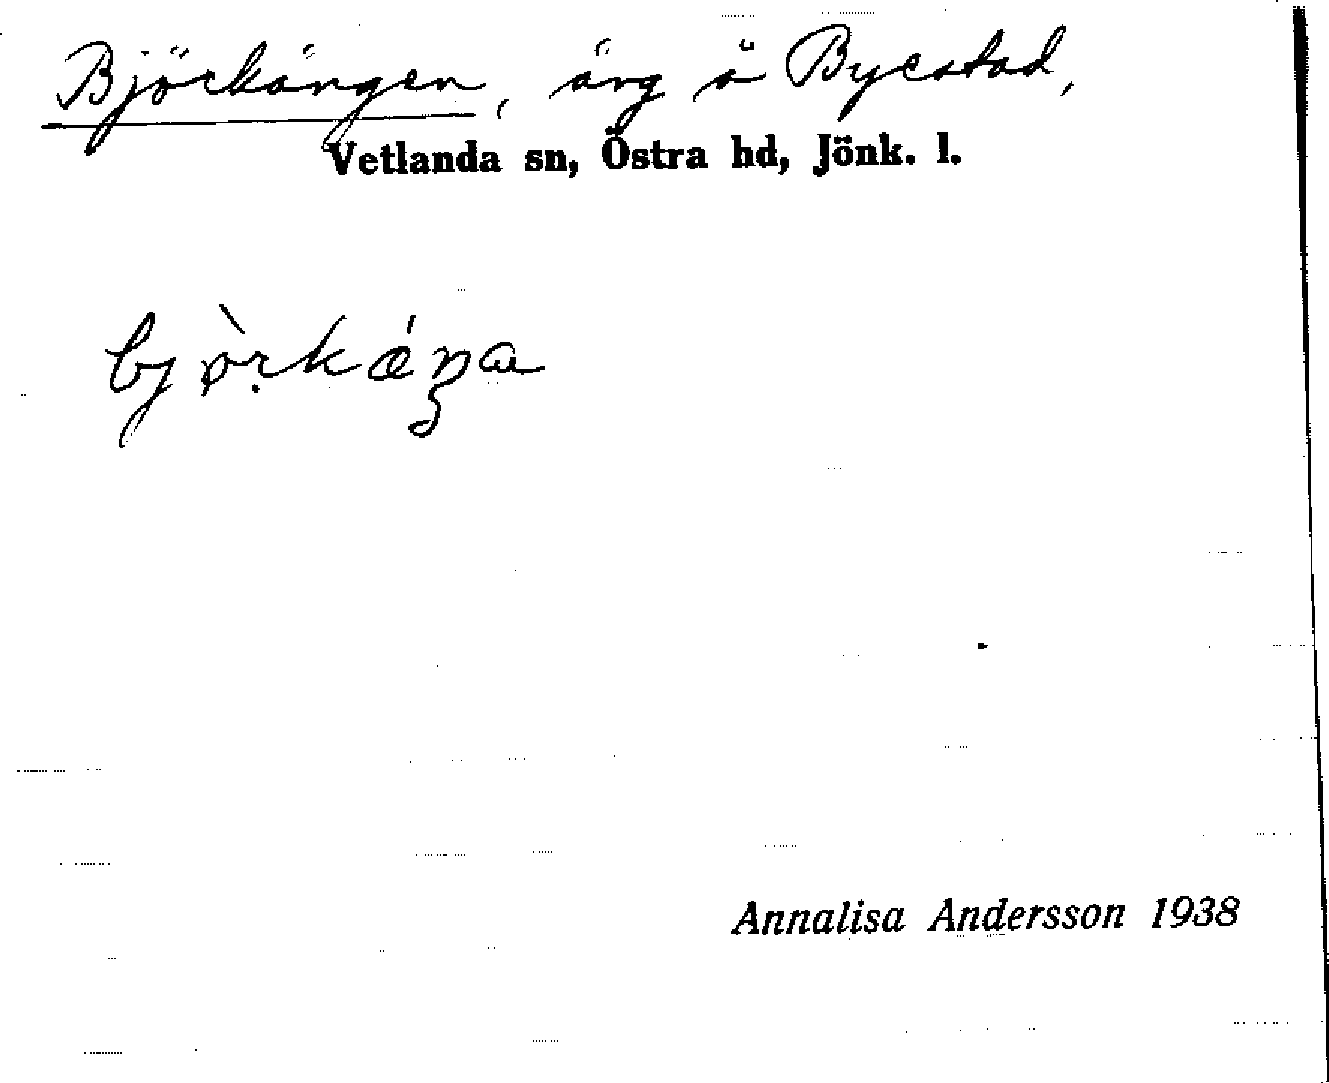 Björkängen, äng å Byestad,
Vetlanda sn, Östra hd, Jönk. l.
Annalisa Andersson 1938